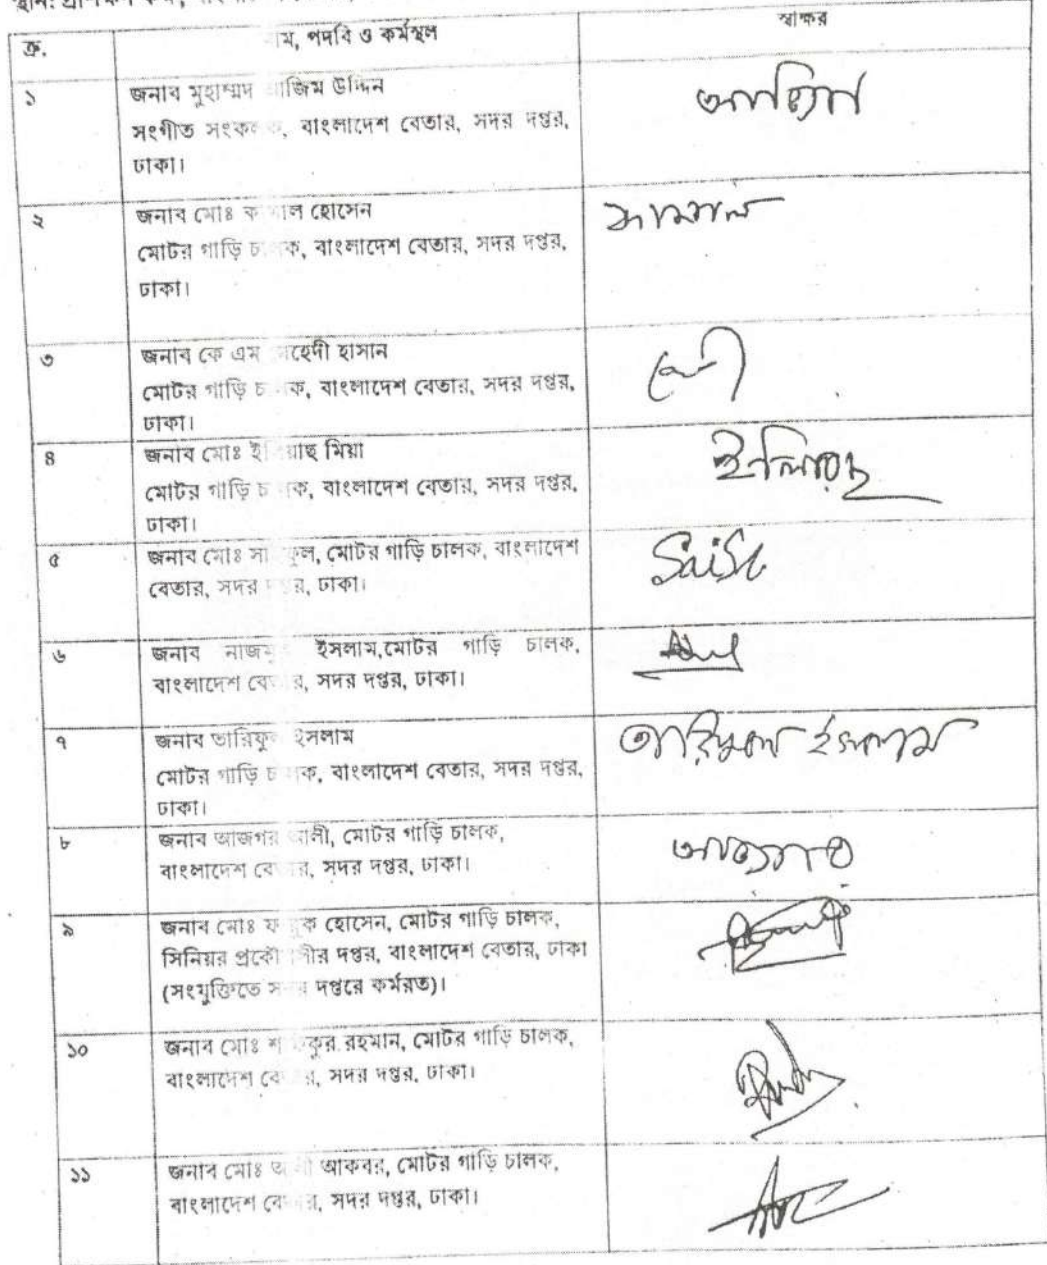 ক্র.
পদবি ও কর্মস্থল
স্বাক্ষর
১
জনাব মুহাম্মদ আজিম উদ্দিন
সংগীত সংকলক, বাংলাদেশ বেতার, সদর দপ্তর,
ঢাকা।
২
জনাব মোঃ কামাল হোসেন
কামাল
মোটর গাড়ি চালক, বাংলাদেশ বেতার, সদর দপ্তর,
ঢাকা।
৩
জনাব কে এম মেহেদী হাসান
মোটর গাড়ি চালক, বাংলাদেশ বেতার, সদর দপ্তর,
ঢাকা।
৪
জনাব মোঃ ইলিয়াছ মিয়া
ইলিয়াছ
মোটর গাড়ি চালক, বাংলাদেশ বেতার, সদর দপ্তর,
ঢাকা।
৫
জনাব মোঃ সাইফুল, মোটর গাড়ি চালক, বাংলাদেশ
বেতার, সদর দপ্তর, ঢাকা।
৬
জনাব নাজমুল ইসলাম,মোটর গাড়ি চালক,
বাংলাদেশ বেতার, সদর দপ্তর, ঢাকা।
৭
জনাব তারিফুল ইসলাম
তারিফুল ইসলাম
মোটর গাড়ি চালক, বাংলাদেশ বেতার, সদর দপ্তর,
ঢাকা।
৮
জনাব আজগর আলী, মোটর গাড়ি চালক,
আজগার
বাংলাদেশ বেতার, সদর দপ্তর, ঢাকা।
৯
জনাব মোঃ ফারুক হোসেন, মোটর গাড়ি চালক,
সিনিয়র প্রকৌশলীর দপ্তর, বাংলাদেশ বেতার, ঢাকা
(সংযুক্তিতে সদর দপ্তরে কর্মরত)।
১০
জনাব মোঃ শফিকুর রহমান, মোটর গাড়ি চালক,
বাংলাদেশ বেতার, সদর দপ্তর, ঢাকা।
১১
জনাব মোঃ আলী আকবর, মোটর গাড়ি চালক,
বাংলাদেশ বেতার, সদর দপ্তর, ঢাকা।